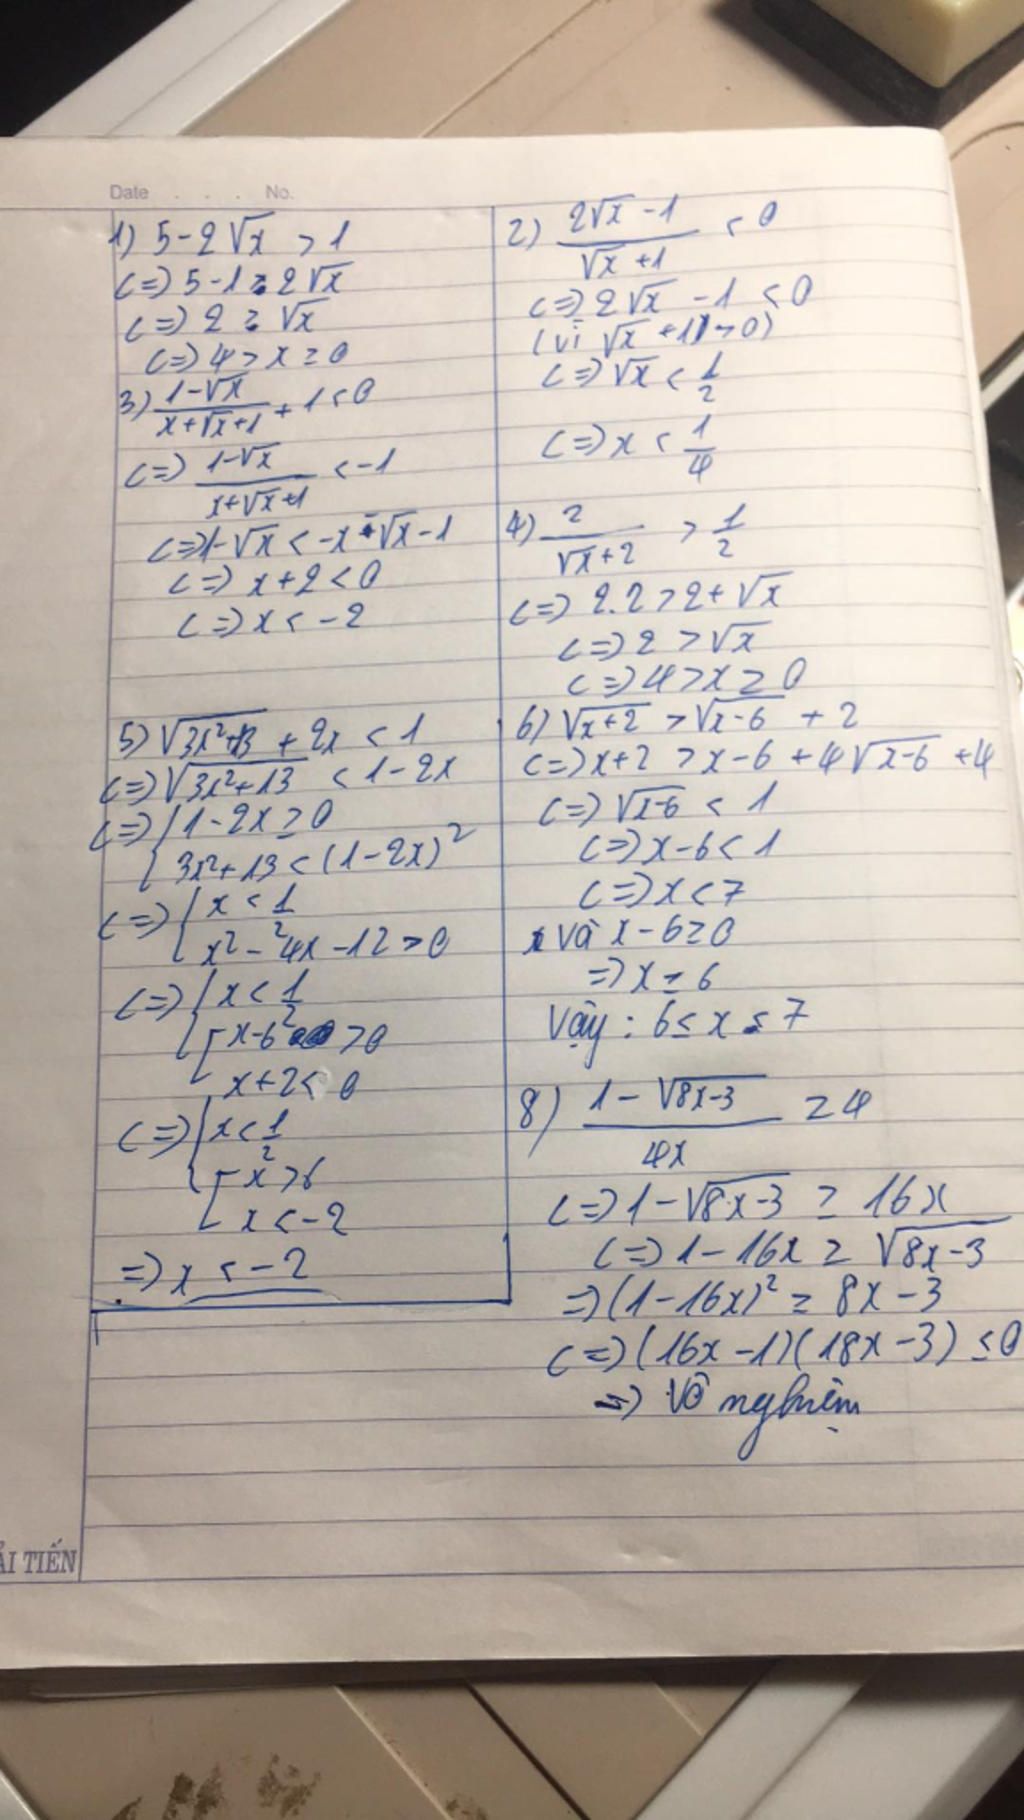 Date . . . . No.
1) 5-2√x > 1
<=> 5-1 ≥ 2√x
<=> 2 ≥ √x
<=> 4 > x ≥ 0
3) (1-√x)/(x+√x+1) + 1 < 0
<=> (1-√x)/(x+√x+1) < -1
<=> 1-√x < -x-√x-1
<=> x+2 < 0
<=> x < -2
5) √(3x²+13) + 2x < 1
<=> √(3x²+13) < 1-2x
<=> { 1-2x ≥ 0
3x²+13 < (1-2x)²
<=> { x < 1/2
x²-4x-12 > 0
<=> { x < 1/2
[ x-6 > 0
x+2 < 0
<=> { x < 1/2
[ x > 6
x < -2
=> x < -2
2) (2√x-1)/(√x+1) < 0
<=> 2√x -1 < 0
(vì √x +1 > 0)
<=> √x < 1/2
<=> x < 1/4
4) 2/(√x+2) > 1/2
<=> 2.2 > 2+√x
<=> 2 > √x
<=> 4 > x ≥ 0
6) √(x+2) > √(x-6) + 2
<=> x+2 > x-6 + 4√(x-6) + 4
<=> √(x-6) < 1
<=> x-6 < 1
<=> x < 7
và x-6 ≥ 0
=> x ≥ 6
Vậy : 6 ≤ x ≤ 7
8) (1-√(8x-3))/(4x) ≥ 4
<=> 1-√(8x-3) ≥ 16x
<=> 1-16x ≥ √(8x-3)
=> (1-16x)² ≥ 8x-3
<=> (16x-1)(18x-3) ≤ 0
=> Vô nghiệm
ẢI TIẾN